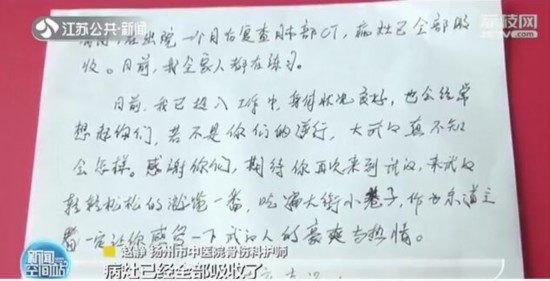 江苏公共·新闻
荔枝网
在出院一个月后复查肺部CT，病灶已全部吸
收。目前，我全家人都在练习。
目前，我已投入工作中，身体状况良好，也会经常
想起你们，若不是你们的逆行，大武汉真不知
会怎样。感谢你们，期待你再次来到武汉，来武汉
轻轻松松的游览一番，吃遍大街小巷子，作为东道主
一定让你感受一下武汉人的豪爽与热情。
新闻
空间站
赵静 扬州市中医院骨伤科护师
病灶已经全部吸收了